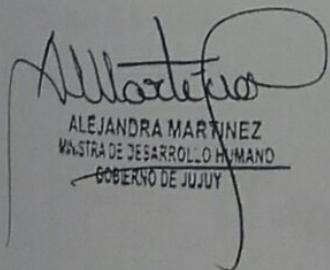 AMartinez
ALEJANDRA MARTINEZ
MINISTRA DE DESARROLLO HUMANO
GOBIERNO DE JUJUY